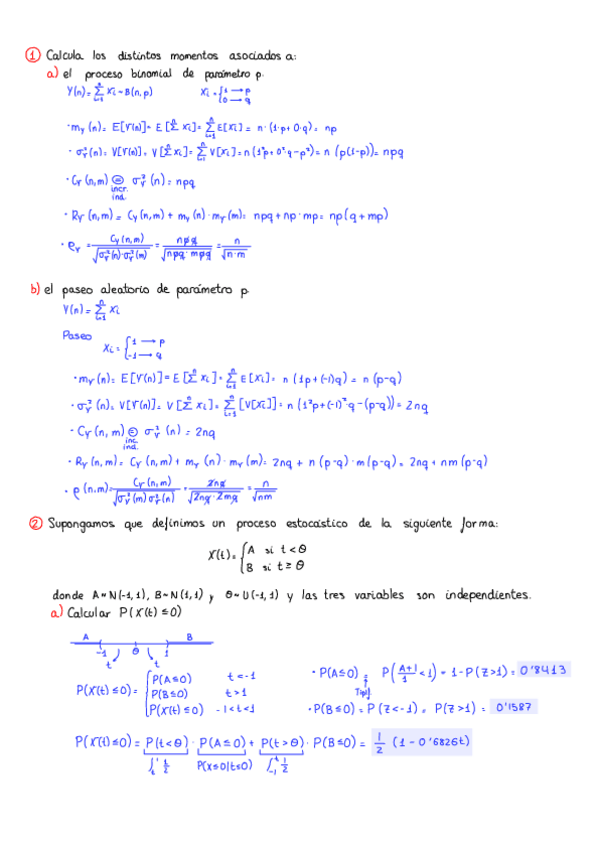 ① Calcula los distintos momentos asociados a:
a) el proceso binomial de parámetro p.
Y(n) = Σ_{i=1}^{n} Xi ~ B(n, p)    Xi = { 1 → p
0 → q
· m_Y(n) = E[Y(n)] = E[Σ^n Xi] = Σ_{i=1}^{n} E[Xi] = n·(1·p + 0·q) = np
· σ_Y²(n) = V[Y(n)] = V[Σ^n Xi] = Σ_{i=1}^{n} V[Xi] = n(1²p + 0²q - p²) = n(p(1-p)) = npq
· C_Y(n,m) = σ_Y²(n) = npq
incr.
ind.
· R_Y(n,m) = C_Y(n,m) + m_Y(n)·m_Y(m) = npq + np·mp = np(q + mp)
· ρ_Y = C_Y(n,m) / √(σ_Y²(n)·σ_Y²(m)) = npq / √(npq·mpq) = n / √(n·m)
b) el paseo aleatorio de parámetro p.
Y(n) = Σ_{i=1}^{n} Xi
Paseo
Xi = { 1 → p
-1 → q
· m_Y(n) = E[Y(n)] = E[Σ^n Xi] = Σ_{i=1}^{n} E[Xi] = n(1p + (-1)q) = n(p-q)
· σ_Y²(n) = V[Y(n)] = V[Σ^n Xi] = Σ_{i=1}^{n} [V[Xi]] = n(1²p + (-1)²q - (p-q)) = 2nq
· C_Y(n,m) = σ_Y²(n) = 2nq
inc.
ind.
· R_Y(n,m) = C_Y(n,m) + m_Y(n)·m_Y(m) = 2nq + n(p-q)·m(p-q) = 2nq + nm(p-q)
· ρ(n,m) = C_Y(n,m) / √(σ_Y²(m) σ_Y²(n)) = 2nq / √(2nq·2mq) = n / √nm
② Supongamos que definimos un proceso estocástico de la siguiente forma:
X(t) = { A si t < Θ
B si t ≥ Θ
donde A ~ N(-1, 1), B ~ N(1, 1) y Θ ~ U(-1, 1) y las tres variables son independientes.
a) Calcular P(X(t) ≤ 0)
A B
-1 Θ 1
t t
P(X(t) ≤ 0) = { P(A ≤ 0)    t < -1
P(B ≤ 0)    t > 1
P(X(t) ≤ 0)    -1 < t < 1
· P(A ≤ 0) = P((A+1)/1 < 1) = 1 - P(Z > 1) = 0'8413
Tipif.
· P(B ≤ 0) = P(Z < -1) = P(Z > 1) = 0'1587
P(X(t) ≤ 0) = P(t < Θ) · P(A ≤ 0) + P(t > Θ) · P(B ≤ 0) = 1/2 (1 - 0'6826t)
∫_t^1 1/2    P(X≤0|t≤0)    ∫_{-1}^t 1/2